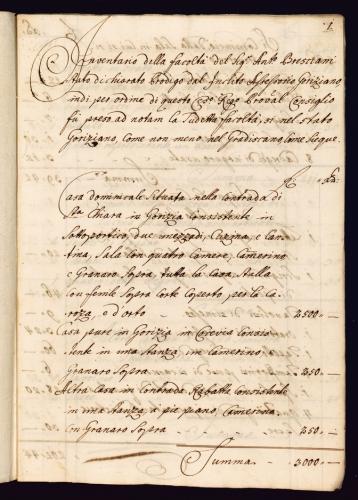 1
Inventario della facoltà del Sigr Antò Bresciani
stato dichiarato Prodigo dal Inclito Assessorio Goriziano,
indi per ordine di questo Ces: Regio Provàl Consiglio
fù preso ad notam la Sudetta facoltà, si nel stato
Goriziano, come non meno nel Gradiscano, come Siegue.
Casa dominicale Situata nella Contrada di
Sta Chiara in Gorizia Consistente in
Sottoportico, due mezzadi, Cucina, e Can-
tina, Sala con quatro Camere, Camerino
e Granaro Sopra, tuta la Casa, Stalla
Con fenile Sopra Corte Coperto per la Ca-
roza, e d'orto - 2500 -
Casa pure in Gorizia in Consis-
tente in una Stanza, un Camerino,
Granaro Sopra - 250 -
Altra Casa in Contrada Rabatta Consistente
in una Stanza à pie piano, Camerino,
Con Granaro Sopra - 250 -
Summa - 3000 -